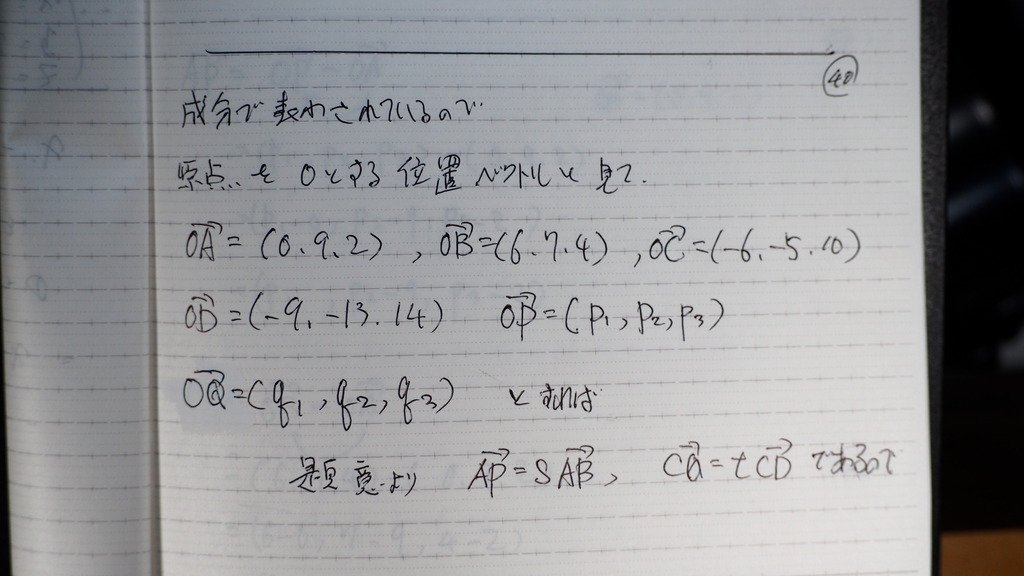 40
成分で表わされているので
原点をOとする位置ベクトルと見て.
OA→ = (0.9.2) , OB→=(6.7.4) , OC→=(-6.-5.10)
OD→=(-9.-13.14) OP→=(p₁,p₂,p₃)
OQ→=(q₁,q₂,q₃) とすれば
題意より AP→=sAB→, CQ→=tCD→ であるので